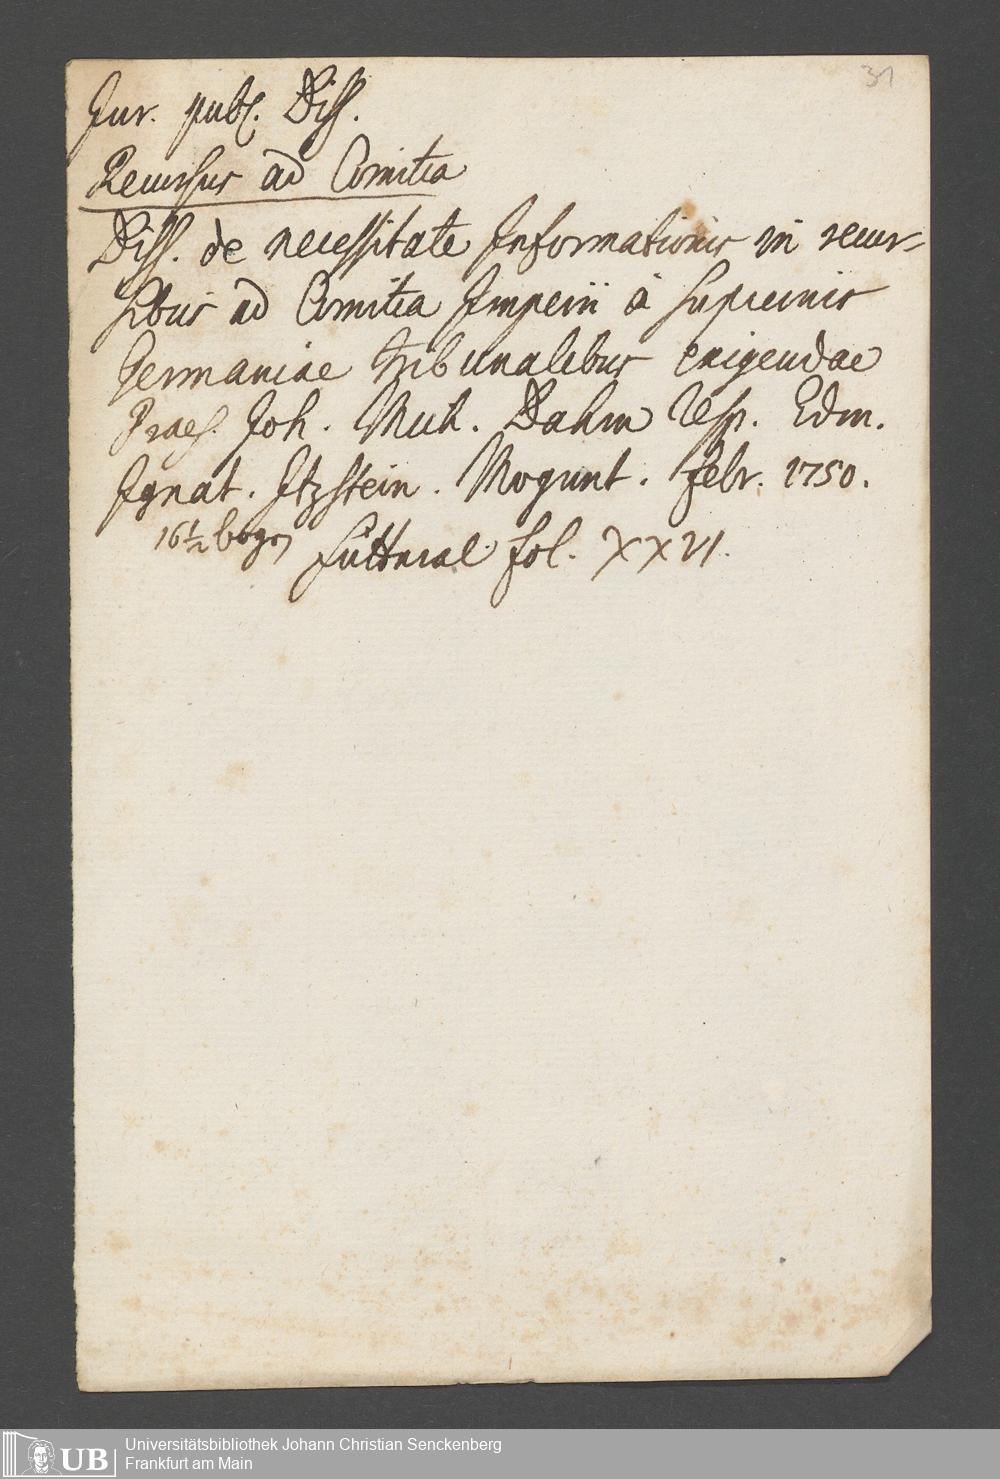 31
Jur. publ. Diss.
Recursus ad Comitia
Diss. de necessitate Informationis in recur-
sibus ad Comitia Imperii à supremis
Germaniae tribunalibus exigendae
Praes. Joh. Mich. Dahm resp. Edm.
Ignat. Itzstein. Mogunt. Febr. 1750.
16 1/2 bogen Futteral fol. XXVI.
UB Universitätsbibliothek Johann Christian Senckenberg
Frankfurt am Main